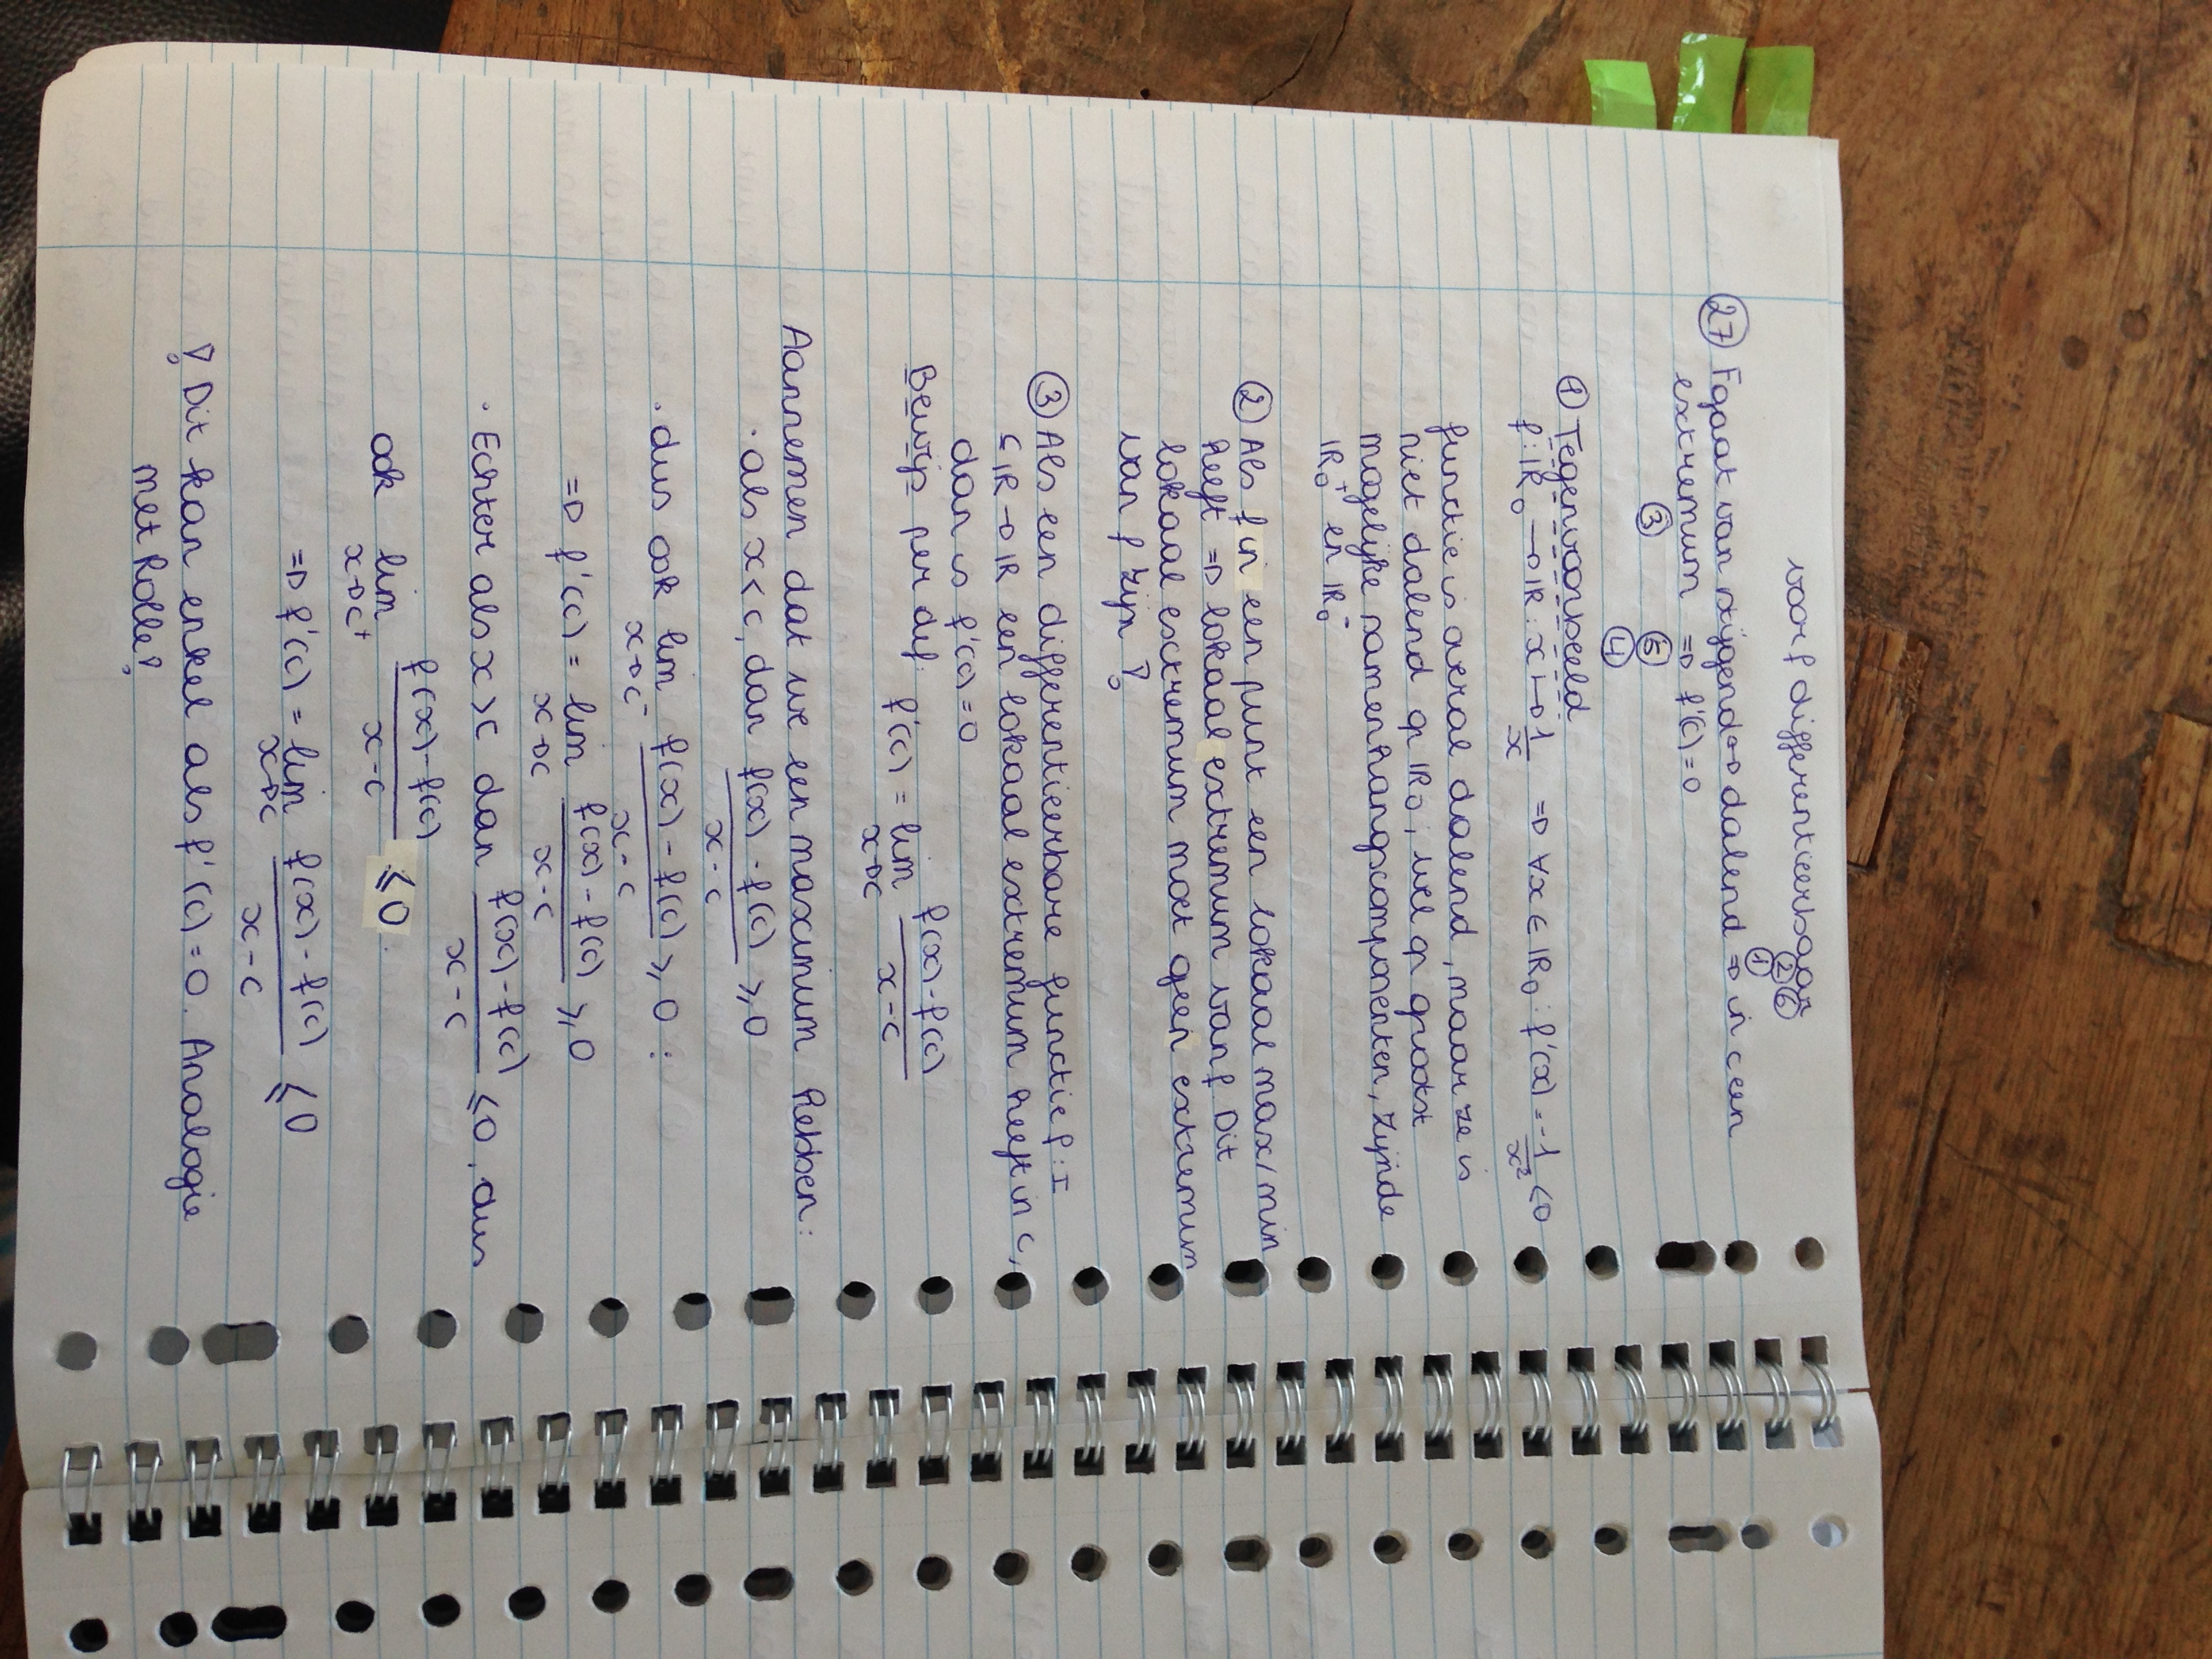 voor f differentieerbaar
② ⑥
①
㉗ F gaat van stijgend ↔ dalend ⇒ in c een
extremum ⇒ f'(c) = 0
③ ⑤
④
① Tegenvoorbeeld
f : IR₀ → IR : x ↦ 1/x ⇒ ∀x ∈ IR₀ : f'(x) = -1/x² < 0
functie is overal dalend, maar ze is
niet dalend op IR₀, wel op grootst
mogelijke samenhangscomponenten, zijnde
IR₀⁺ en IR₀⁻
② Als f in een punt een lokaal max/min
heeft ⇒ lokaal extremum van f. Dit
lokaal extremum moet geen extremum
van f zijn !
③ Als een differentieerbare functie f : I
⊂ IR → IR een lokaal extremum heeft in c,
dan is f'(c) = 0
Bewijs per def. f'(c) = lim x→c (f(x) - f(c))/(x - c)
Aannemen dat we een maximum hebben:
· als x < c, dan (f(x) - f(c))/(x - c) ≥ 0
· dus ook lim x→c⁻ (f(x) - f(c))/(x - c) ≥ 0 :
⇒ f'(c) = lim x→c (f(x) - f(c))/(x - c) ≥ 0
· Echter als x > c dan (f(x) - f(c))/(x - c) ≤ 0, dus
ook lim x→c⁺ (f(x) - f(c))/(x - c) ≤ 0.
⇒ f'(c) = lim x→c (f(x) - f(c))/(x - c) ≤ 0
! Dit kan enkel als f'(c) = 0. Analogie
met Rolle!